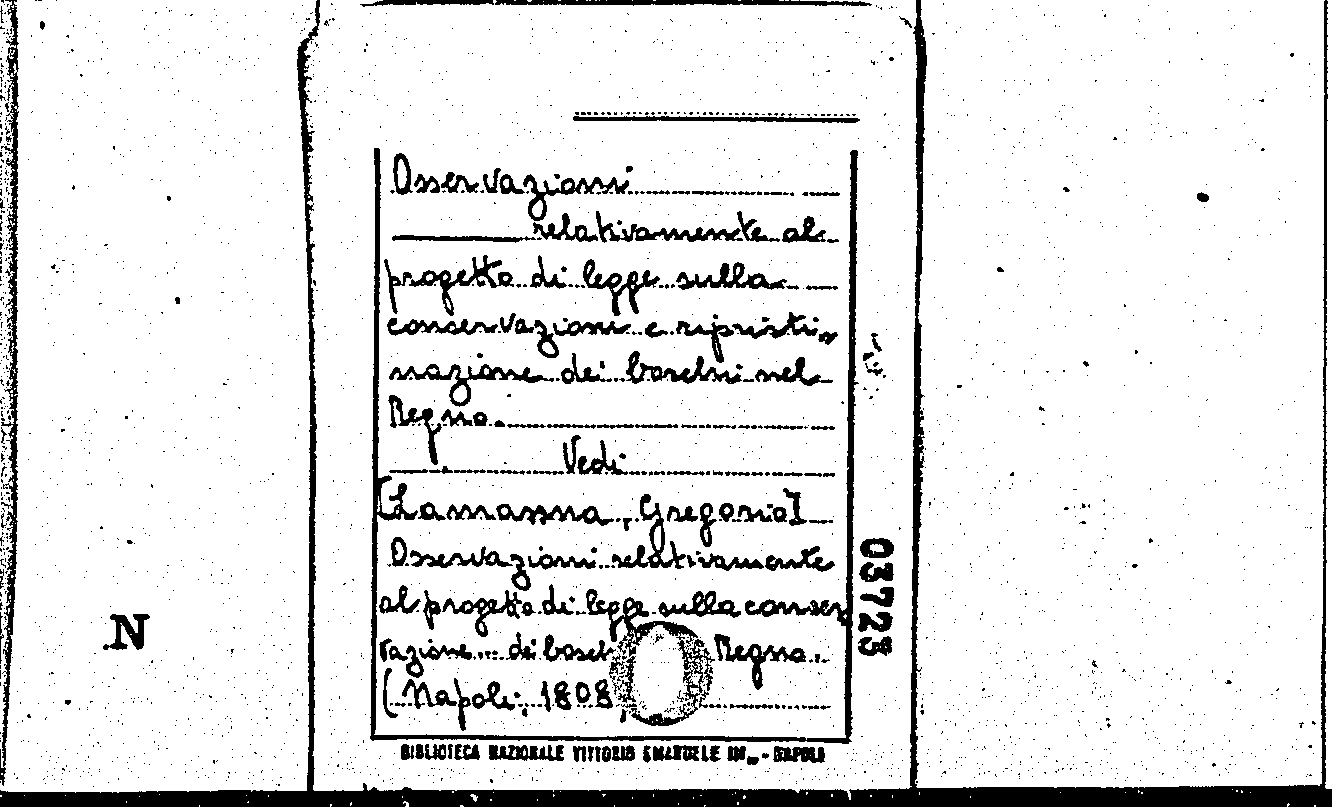 Osservazioni
relativamente al
progetto di legge sulla
conservazione e ripristi„
nazione dei boschi nel
Regno.
Vedi
[Lamanna, Gregorio]
Osservazioni relativamente
al progetto di legge sulla conser
vazione... dei Regno.
(Napoli, 1808,
BIBLIOTECA NAZIONALE VITTORIO EMANUELE III„ - NAPOLI
03723
N